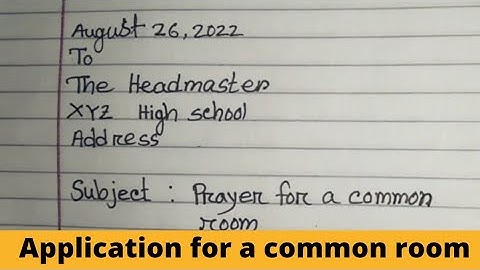 August 26, 2022
To
The Headmaster
XYZ High school
Address
Subject : Prayer for a common
room
Application for a common room